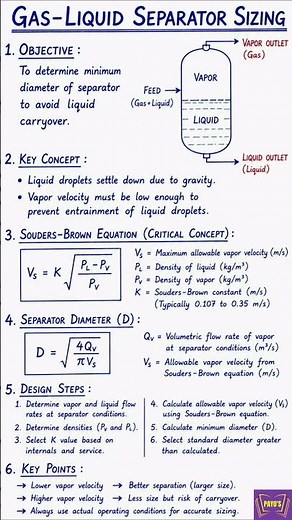 GAS-LIQUID SEPARATOR SIZING
1. OBJECTIVE :
To determine minimum
diameter of separator
to avoid liquid
carryover.
VAPOR OUTLET
(Gas)
FEED
(Gas+Liquid)
VAPOR
LIQUID
LIQUID OUTLET
(Liquid)
2. KEY CONCEPT :
• Liquid droplets settle down due to gravity.
• Vapor velocity must be low enough to
prevent entrainment of liquid droplets.
3. SOUDERS-BROWN EQUATION (CRITICAL CONCEPT) :
V_S = K √((P_L - P_V) / P_V)
V_S = Maximum allowable vapor velocity (m/s)
P_L = Density of liquid (kg/m³)
P_V = Density of vapor (kg/m³)
K = Souders-Brown constant (m/s)
(Typically 0.107 to 0.35 m/s)
4. SEPARATOR DIAMETER (D) :
D = √(4Q_V / πV_S)
Q_V = Volumetric flow rate of vapor
at separator conditions (m³/s)
V_S = Allowable vapor velocity from
Souders-Brown equation (m/s)
5. DESIGN STEPS :
1. Determine vapor and liquid flow
rates at separator conditions.
2. Determine densities (P_V and P_L).
3. Select K value based on
internals and service.
4. Calculate allowable vapor velocity (V_S)
using Souders-Brown equation.
5. Calculate minimum diameter (D).
6. Select standard diameter greater
than calculated.
6. KEY POINTS :
→ Lower vapor velocity → Better separation (larger size).
→ Higher vapor velocity → Less size but risk of carryover.
→ Always use actual operating conditions for accurate sizing.
PAYO'S